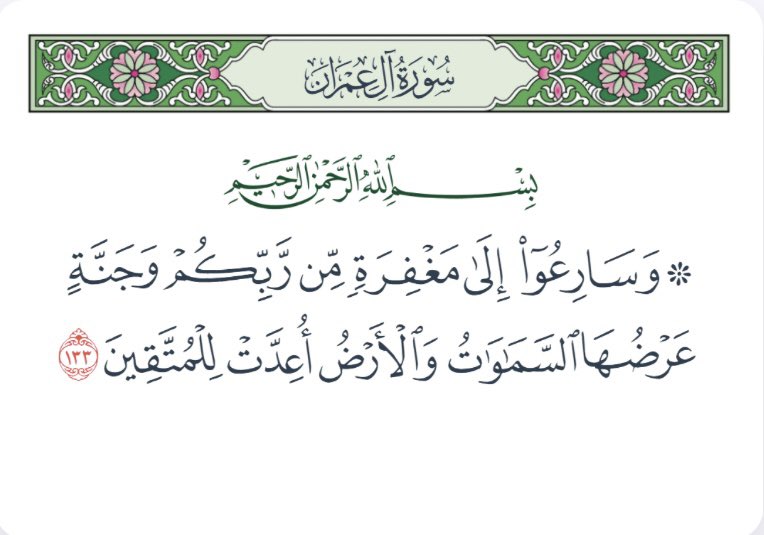 سُورَةُ آلِ عِمْرَانَ
بِسْمِ ٱللَّهِ ٱلرَّحْمَٰنِ ٱلرَّحِيمِ
۞ وَسَارِعُوٓا۟ إِلَىٰ مَغْفِرَةٍ مِّن رَّبِّكُمْ وَجَنَّةٍ
عَرْضُهَا ٱلسَّمَٰوَٰتُ وَٱلْأَرْضُ أُعِدَّتْ لِلْمُتَّقِينَ ١٣٣